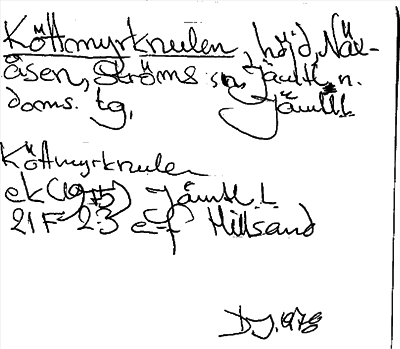 Köttmyrknulen, höjd, Näx-
åsen, Ströms sn, Jämtl. n.
doms. tg, Jämtl.
Köttmyrknulen
ek (1975) Jämtl. L.
21F 2-3 e-f Hillsand
DJ. 1978